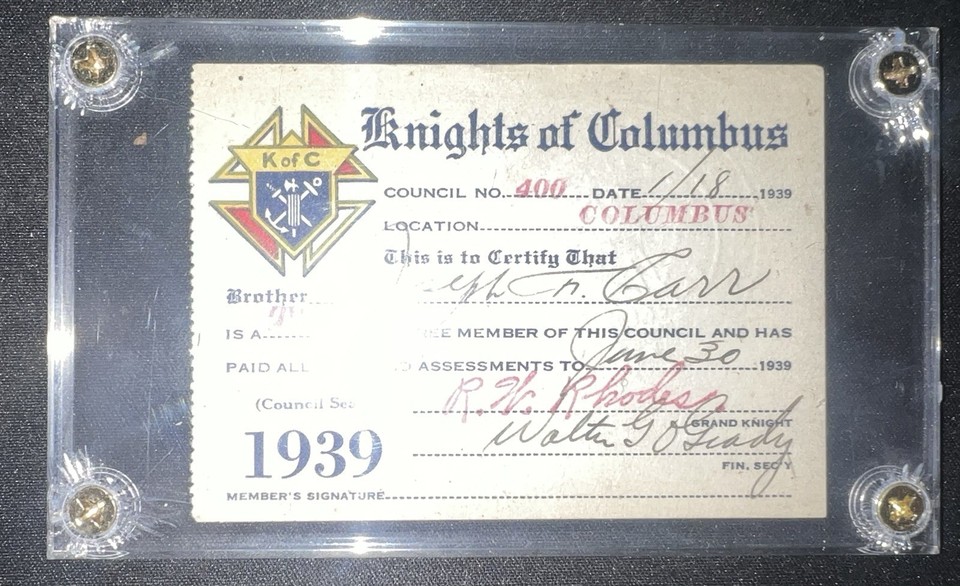 Knights of Columbus
K of C
COUNCIL NO. 400 DATE 1/18 1939
LOCATION COLUMBUS
This is to Certify That
Brother Joseph F. Carr
IS A MEMBER OF THIS COUNCIL AND HAS
PAID ALL ASSESSMENTS TO June 30 1939
(Council Sea
R. W. Rhodes
GRAND KNIGHT
Walter G O'Grady
FIN. SEC'Y
1939
MEMBER'S SIGNATURE